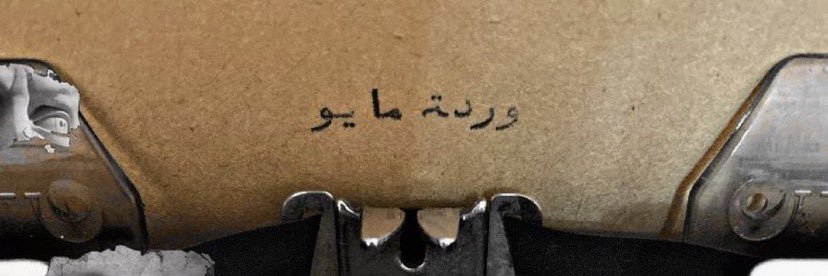 وردة مايو